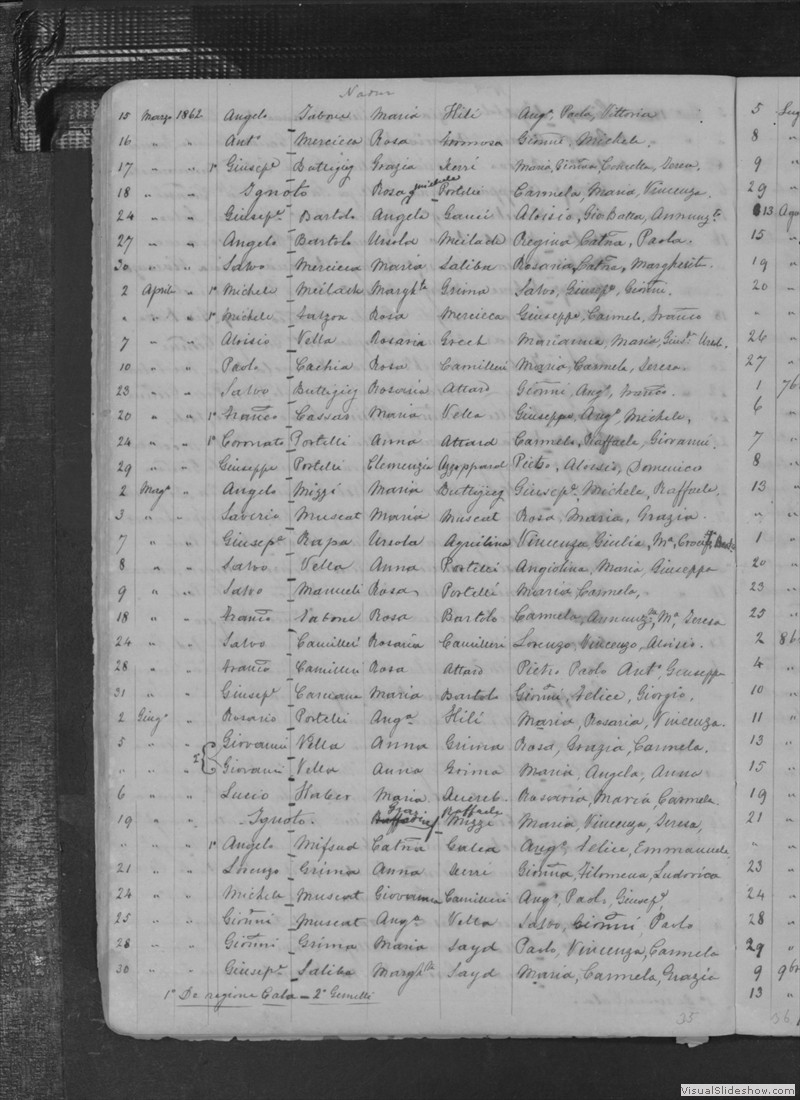 Nadur
15 Marzo 1862 Angelo Tabone Maria Hili Ango, Paolo, Vittoria 5
16 " " Anto Mercieca Rosa Formosa Gionni, Michele. 8
17 " " 1o Giusepe Buttigieg Grazia Xerri Maria, Carmela, Teresa. 9
18 " " Ignoto Rosa Portelli Carmela, Maria, Vincenza. 29
24 " " Giusepe Bartolo Angela Gauci Aloisio, Gio Batta, Annunzta 13 Ago
27 " " Angelo Bartolo Ursola Meilach Regina, Catna, Paola. 15
30 " " Salvo Mercieca Maria Saliba Rosaria, Catna, Margherit. 19
2 Aprile " 1o Michele Meilach Marghta Grima Salvo, Giusepe, Gionni. 20
" " " 1o Michele Rosa Mercieca Giuseppe, Carmelo, Franco
7 " " Aloisio Vella Rosaria Grech Marianna, Maria, 26
10 " " Paolo Cachia Rosa Camilleri Maria, Carmela, Teresa. 27
23 " " Salvo Buttigieg Rosaria Attard Gionni, Ango, Franco. 1 7b
20 " " 1o Franco Cassar Maria Vella Giuseppe, Ango, Michele, 6
24 " " 1o Coronato Portelli Anna Attard Carmelo, Raffaele, Giovanni. 7
29 " " Giuseppe Portelli Clemenzia Azzoppard Pietro, Aloisio, Domenico 8
2 Mago " Angelo Mizzi Maria Buttigieg Giusepe, Michele, Raffaele. 13
3 " " Saverio Muscat Maria Muscat Rosa, Maria, Grazia.
7 " " Giusepe Rapa Ursola Agostina Vincenza, Giulia, Ma, 1
8 " " Salvo Vella Anna Portelli Angiolina, Maria, Giuseppa 20
9 " " Salvo Manueli Rosa Portelli Maria, Carmela, 23
18 " " Franco Tabone Rosa Bartolo Carmela, Annunzta, Ma, Teresa 25
24 " " Salvo Camilleri Rosaria Camilleri Lorenzo, Vincenzo, Aloisio. 2 8b
28 " " Franco Camilleri Rosa Attard Pietro Paolo Anto, Giuseppe 4
31 " " Giusepe Caruana Maria Bartolo Gionni, Felice, Giorgio. 10
2 Giugo " Rosario Portelli Anga Hili Maria, Rosaria, Vincenza. 11
5 " " Giovanni Vella Anna Grima Rosa, Grazia, Carmela. 13
" " " 2o Giovanni Vella Anna Grima Maria, Angela, Anna 15
6 " " Lucio Haber Maria Rosaria, Maria, Carmela. 19
19 " " Ignoto. Raffaela Mizzi Maria, Vincenza, Teresa, 21
" " " 1o Angelo Mifsud Catna Galea Ango, Felice, Emmanuele
21 " " Lorenzo Grima Anna Gionna, Filomena, Ludovica 23
24 " " Michele Muscat Giovanna Camilleri Ango, Paolo, Giusepe. 24
25 " " Gionni Muscat Anga Vella Salvo, Gionni, Paolo 28
28 " " Gionni Grima Maria Sayd Paolo, Vincenza, Carmela 29
30 " " Giusepe Saliba Marghta Sayd Maria, Carmela, Grazia 9 9b
1o De regione Cala - 2o Gemelli 13
35 36
VisualSlideshow.com